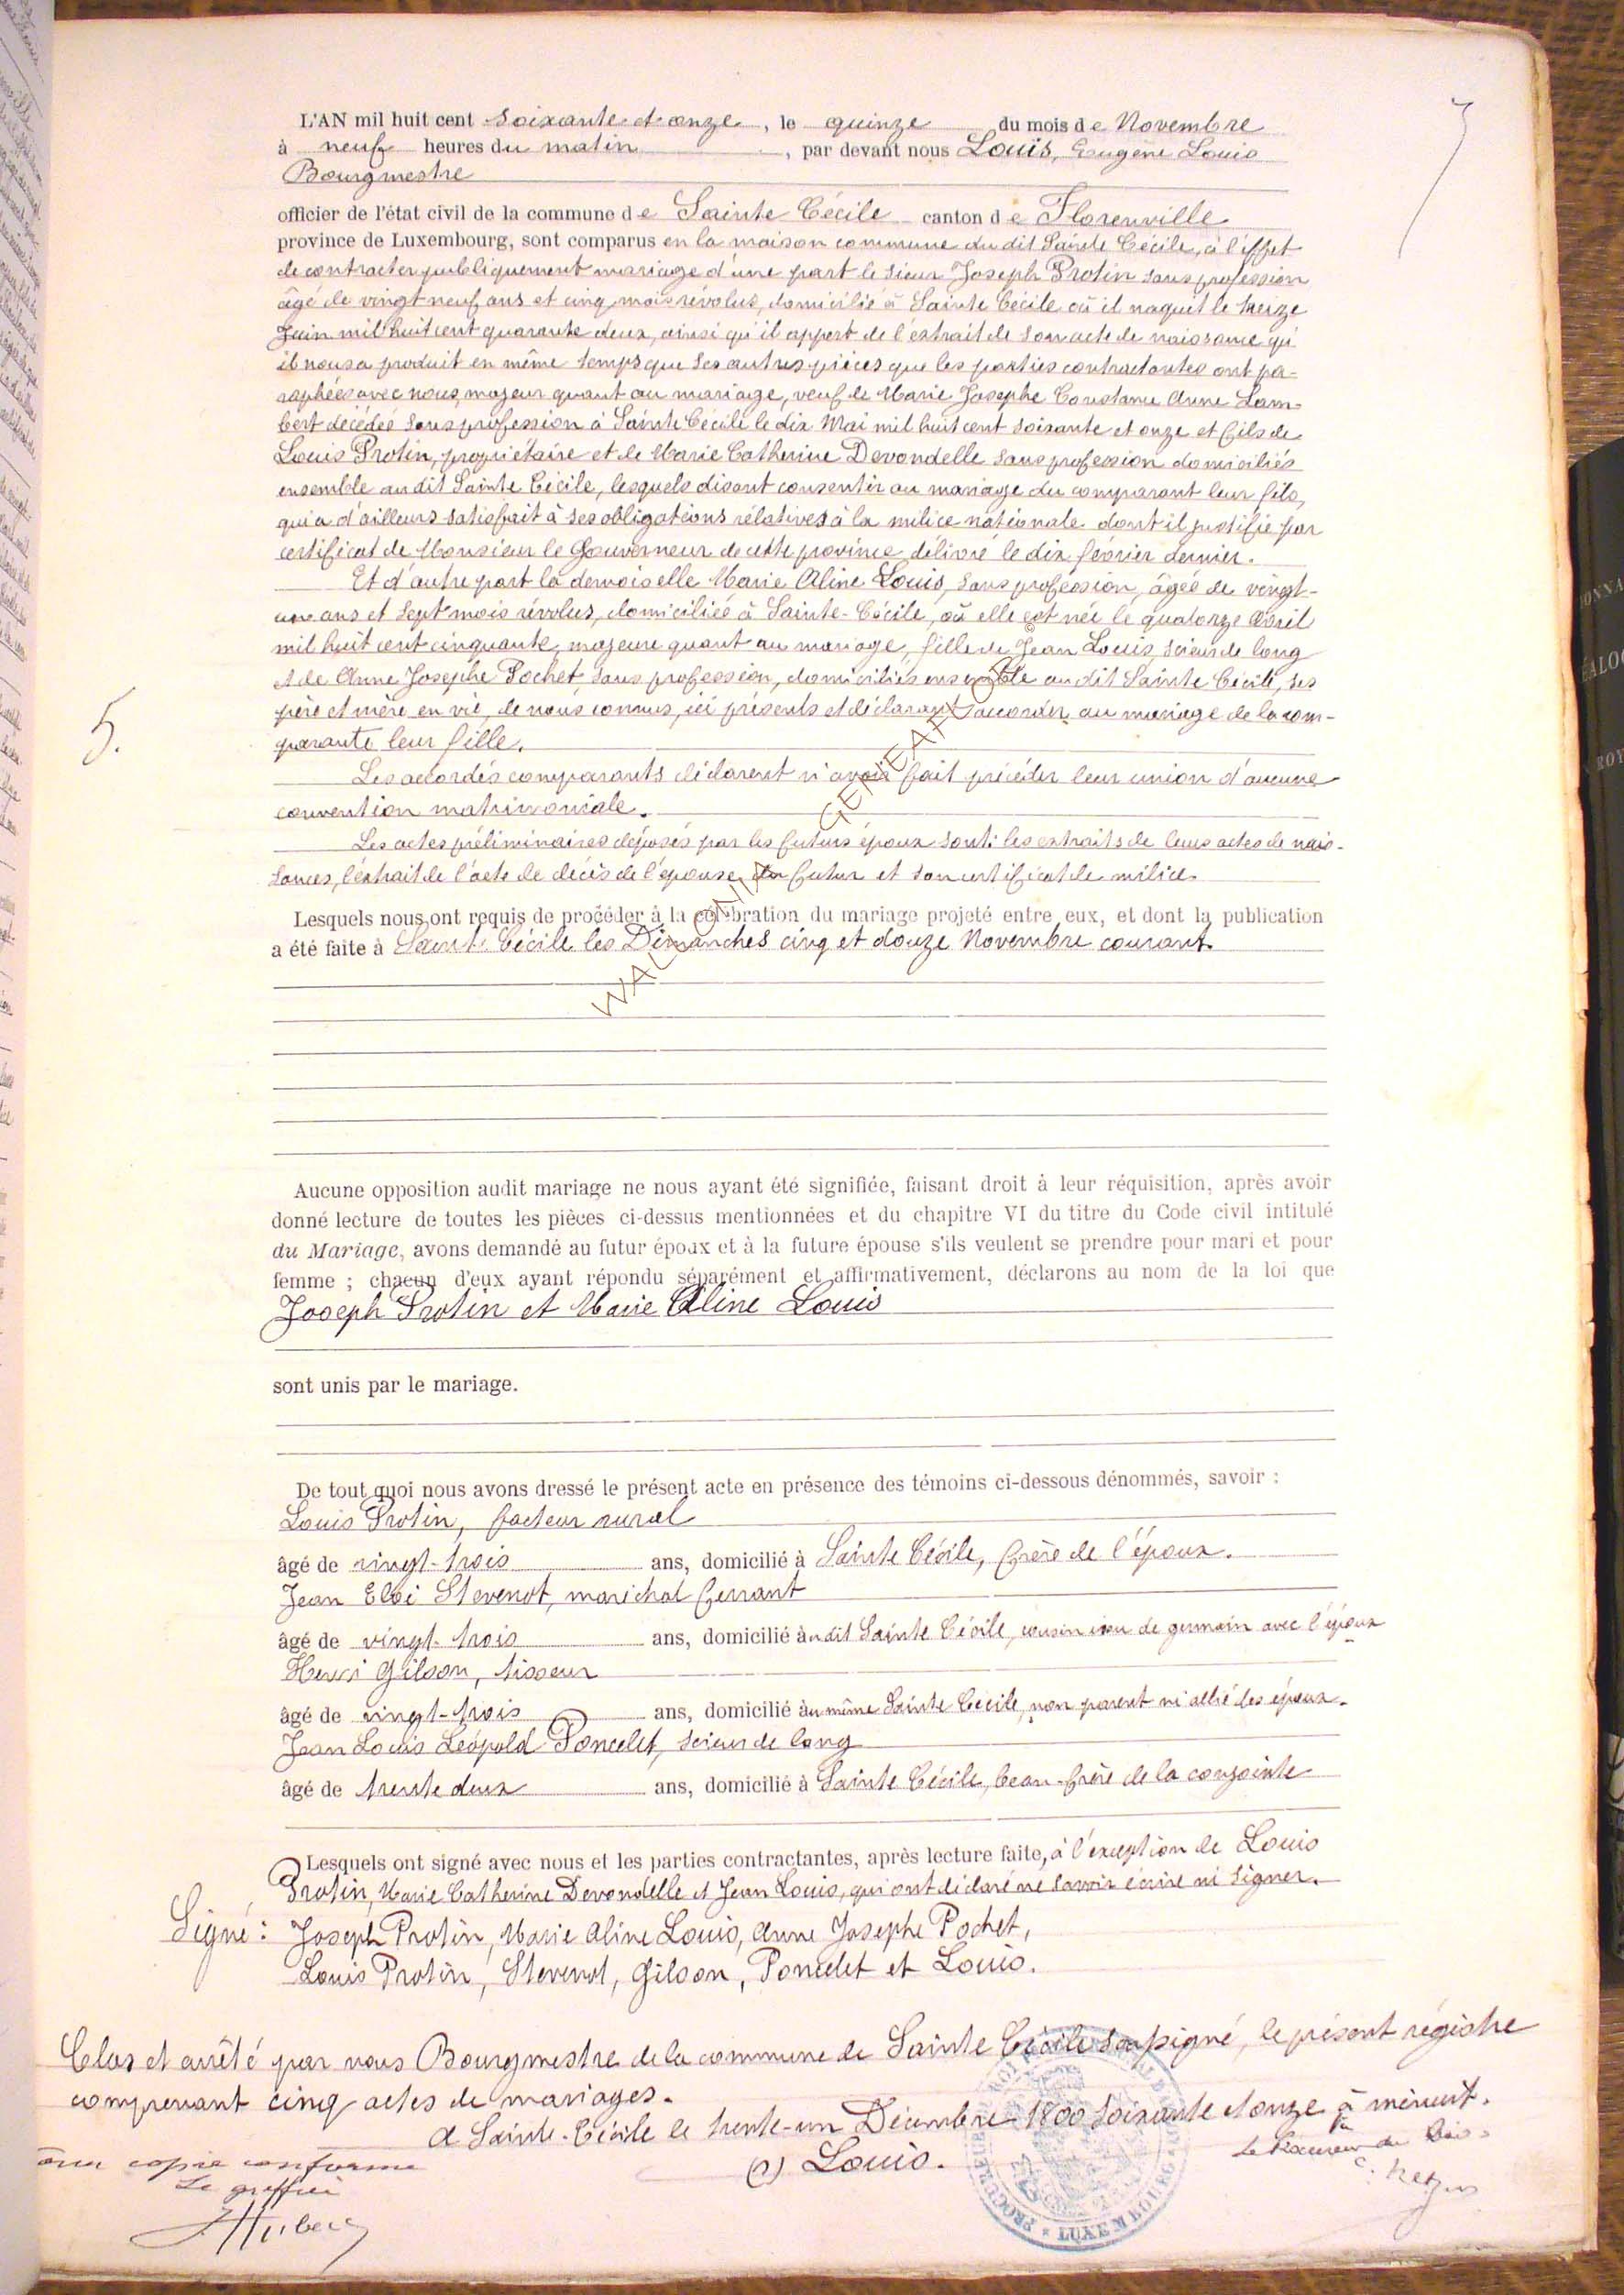 L'AN mil huit cent soixante et onze, le quinze du mois de Novembre
à neuf heures du matin, par devant nous Louis, Eugène Louis
Bourgmestre
officier de l'état civil de la commune de Sainte Cécile canton de Florenville
province de Luxembourg, sont comparus en la maison commune du dit Sainte Cécile, à l'effet
de contracter publiquement mariage d'une part le sieur Joseph Protin sans profession
âgé de vingt neuf ans et cinq mois révolus, domicilié à Sainte Cécile où il naquit le treize
Juin mil huit cent quarante deux, ainsi qu'il appert de l'extrait de son acte de naissance qu'
il nous a produit en même temps que ses autres pièces que les parties contractantes ont pa-
raphées avec nous, majeur quant au mariage, veuf de Marie Josephe Constance Anne Lam-
bert décédée sans profession à Sainte Cécile le dix Mai mil huit cent soixante et onze et fils de
Louis Protin, propriétaire et de Marie Catherine Devondelle sans profession domiciliés
ensemble au dit Sainte Cécile, lesquels disant consentir au mariage du comparant leur fils,
qui a d'ailleurs satisfait à ses obligations rélatives à la milice nationale dont il justifie par
certificat de Monsieur le Gouverneur de cette province délivré le dix février dernier.
Et d'autre part la demoiselle Marie Aline Louis, sans profession, âgée de vingt-
un ans et sept mois révolus, domiciliée à Sainte-Cécile, où elle est née le quatorze Avril
mil huit cent cinquante, majeure quant au mariage, fille de Jean Louis, scieur de long
et de Anne Josephe Pochet, sans profession, domiciliés ensemble au dit Sainte Cécile, ses
père et mère en vie, de nous connus, ici présents et déclarant accorder au mariage de la com-
parante leur fille.
5.
Les accordés comparants déclarent n'avoir fait précéder leur union d'aucune
convention matrimoniale.
Les actes préliminaires déposés par les futurs époux sont: les extraits de leurs actes de nais-
sances, l'extrait de l'acte de décès de l'épouse du futur et son certificat de milice
Lesquels nous ont requis de procéder à la célébration du mariage projeté entre eux, et dont la publication
a été faite à Sainte Cécile les Dimanches cinq et douze Novembre courant.
Aucune opposition audit mariage ne nous ayant été signifiée, faisant droit à leur réquisition, après avoir
donné lecture de toutes les pièces ci-dessus mentionnées et du chapitre VI du titre du Code civil intitulé
du Mariage, avons demandé au futur époux et à la future épouse s'ils veulent se prendre pour mari et pour
femme ; chacun d'eux ayant répondu séparément et affirmativement, déclarons au nom de la loi que
Joseph Protin et Marie Aline Louis
sont unis par le mariage.
De tout quoi nous avons dressé le présent acte en présence des témoins ci-dessous dénommés, savoir :
Louis Protin, facteur rural
âgé de vingt-trois ans, domicilié à Sainte Cécile, frère de l'époux.
Jean Eloi Stevenot, maréchal ferrant
âgé de vingt-trois ans, domicilié àudit Sainte Cécile, cousin issu de germain avec l'époux
Henri Gilson, tisseur
âgé de vingt-trois ans, domicilié àu même Sainte Cécile, non parent ni allié des époux.
Jean Louis Léopold Poncelet, scieur de long
âgé de trente deux ans, domicilié à Sainte Cécile, beau-frère de la conjointe
Lesquels ont signé avec nous et les parties contractantes, après lecture faite, à l'exception de Louis
Protin, Marie Catherine Devondelle et Jean Louis, qui ont déclaré ne savoir écrire ni signer.
Signé : Joseph Protin, Marie Aline Louis, Anne Josephe Pochet,
Louis Protin, Stevenot, Gilson, Poncelet et Louis.
Clos et arrêté par nous Bourgmestre de la commune de Sainte Cécile soussigné, le présent régistre
comprenant cinq actes de mariages.
A Sainte-Cécile le trente-un Décembre 1800 soixante et onze à minuit.
(s) Louis.
copie conforme
Le greffier
Le Procureur du Roi
LUXEMBOURG